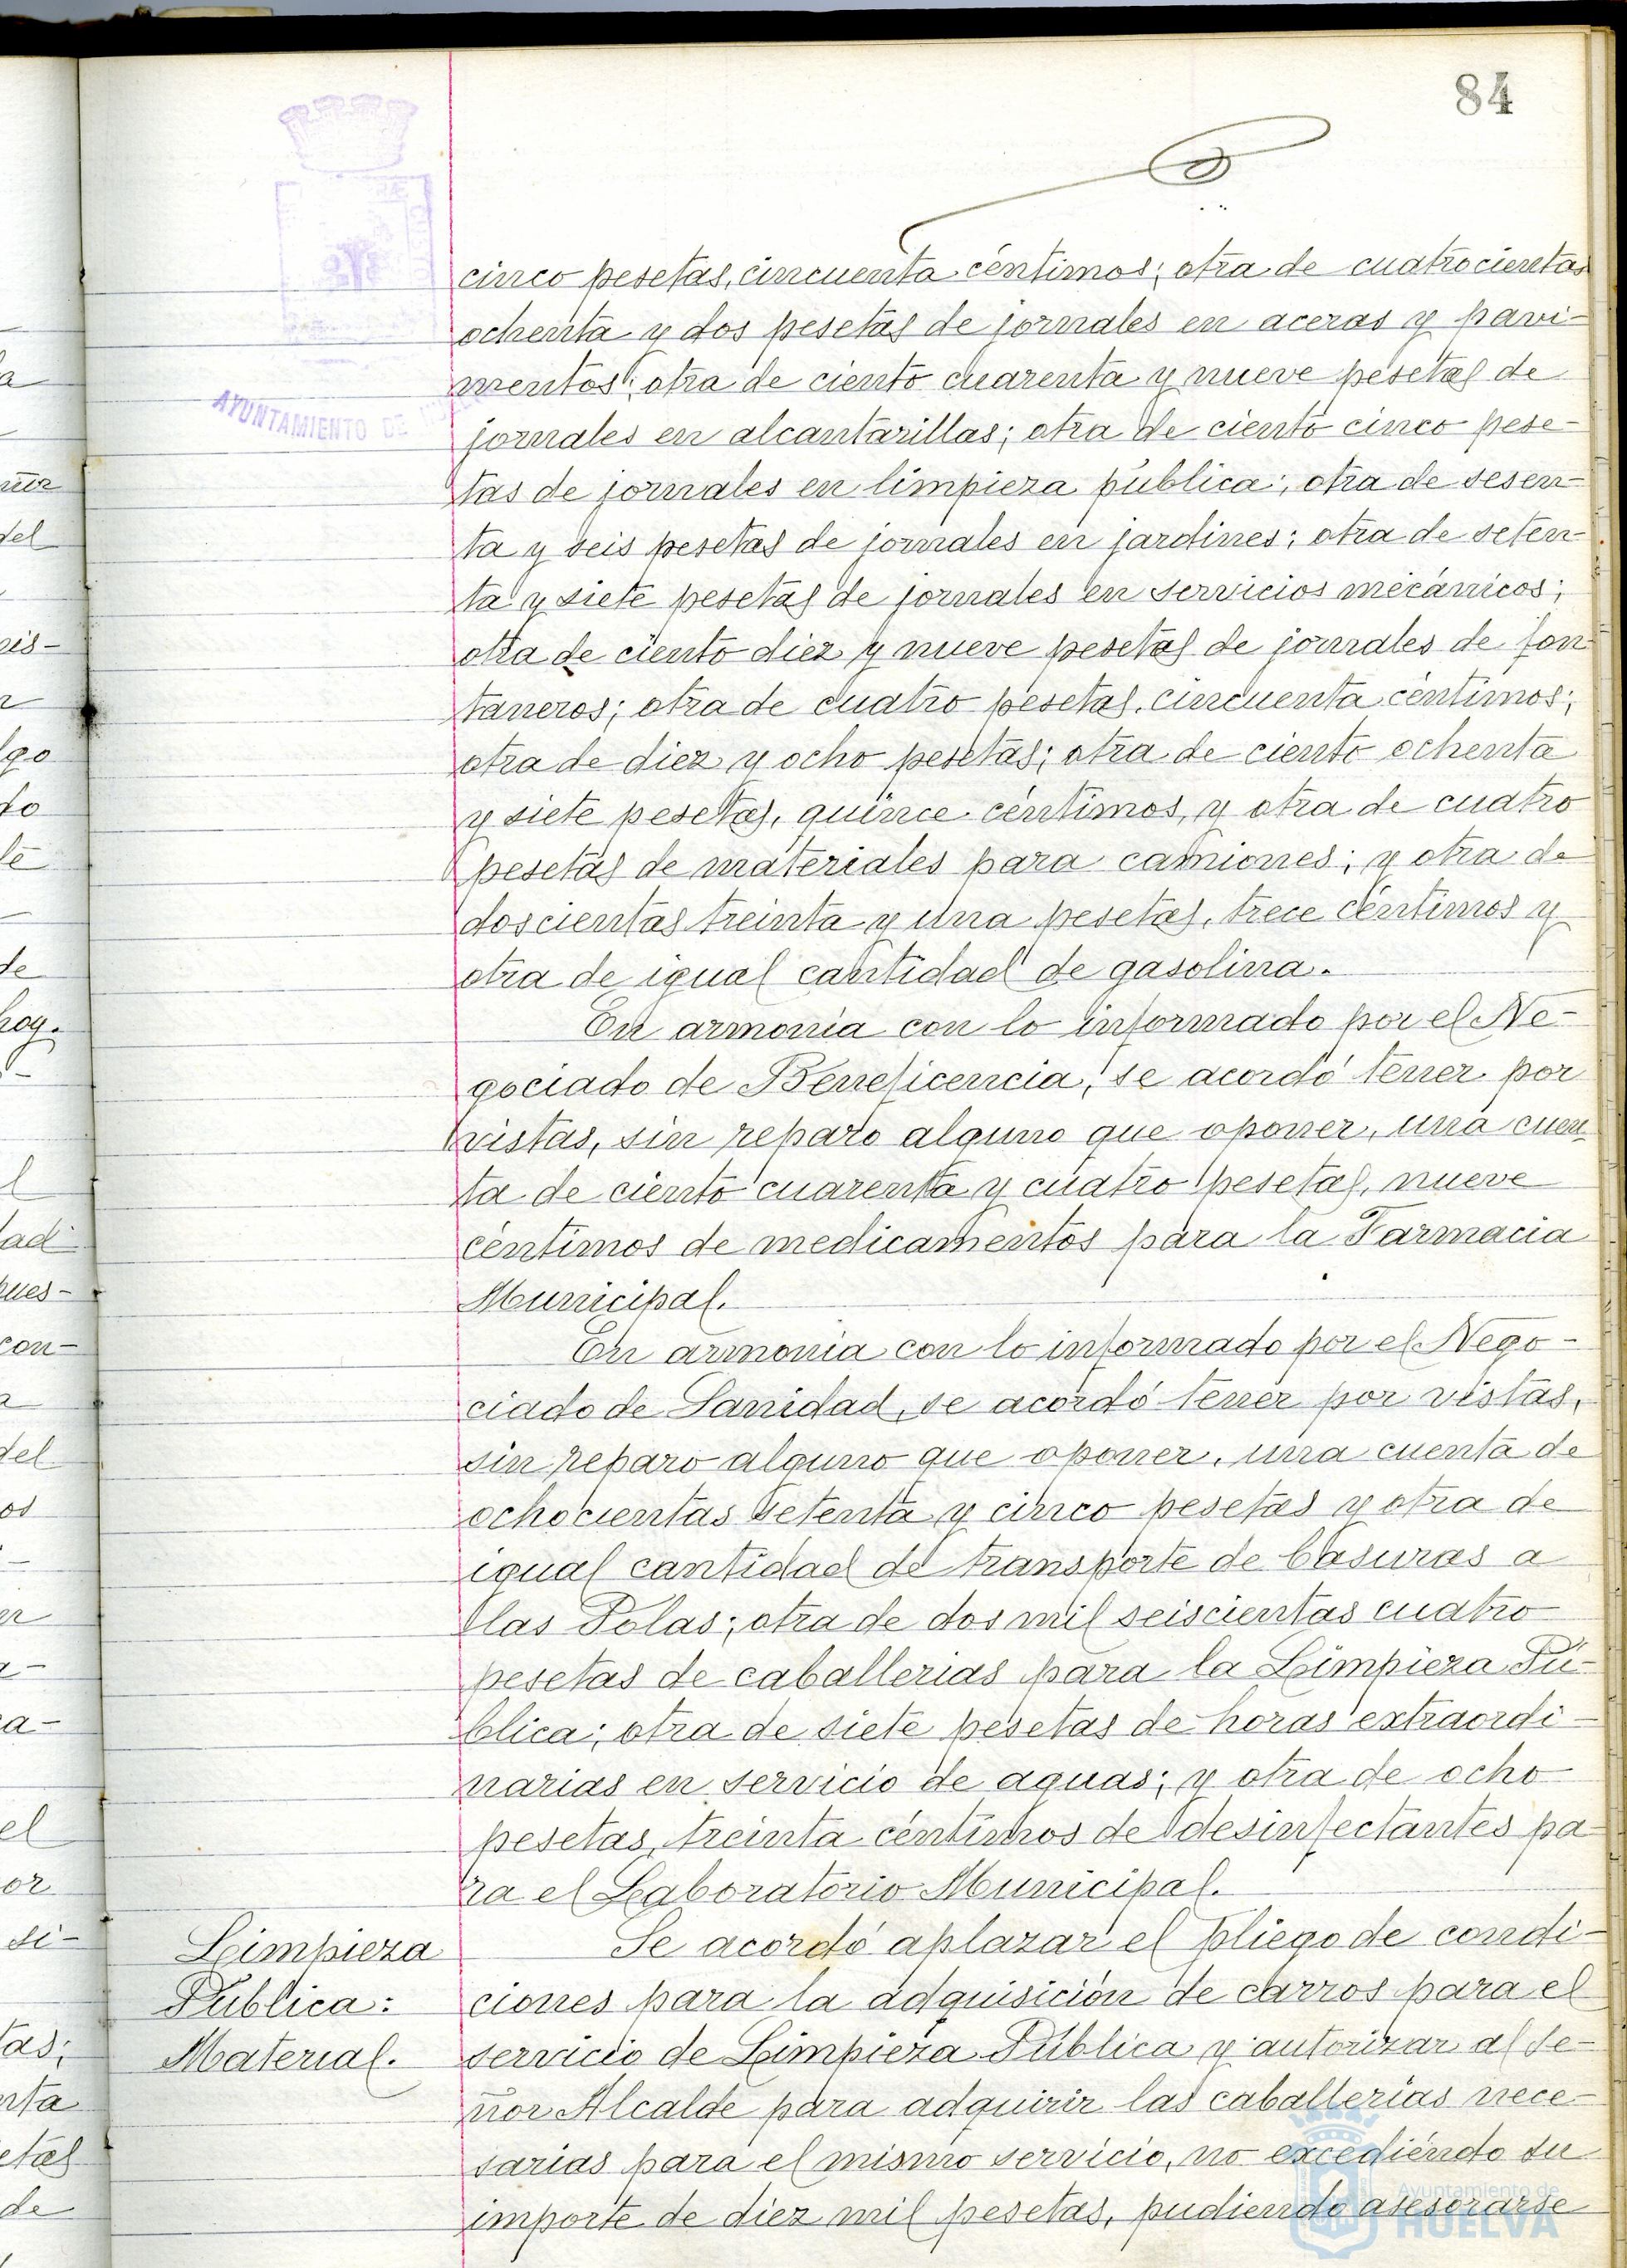 84
AYUNTAMIENTO DE
cinco pesetas, cincuenta céntimos; otra de cuatrocientas
ochenta y dos pesetas de jornales en aceras y pavi-
mentos; otra de ciento cuarenta y nueve pesetas de
jornales en alcantarillas; otra de ciento cinco pese-
tas de jornales en limpieza pública; otra de sesen-
ta y seis pesetas de jornales en jardines; otra de seten-
ta y siete pesetas de jornales en servicios mecánicos;
otra de ciento diez y nueve pesetas de jornales de fon-
taneros; otra de cuatro pesetas, cincuenta céntimos;
otra de diez y ocho pesetas; otra de ciento ochenta
y siete pesetas, quince céntimos, y otra de cuatro
pesetas de materiales para camiones; y otra de
doscientas treinta y una pesetas, trece céntimos y
otra de igual cantidad de gasolina.
En armonía con lo informado por el Ne-
gociado de Beneficencia, se acordó tener por
vistas, sin reparo alguno que oponer, una cuen-
ta de ciento cuarenta y cuatro pesetas, nueve
céntimos de medicamentos para la Farmacia
Municipal.
En armonía con lo informado por el Nego-
ciado de Sanidad, se acordó tener por vistas,
sin reparo alguno que oponer, una cuenta de
ochocientas setenta y cinco pesetas y otra de
igual cantidad de transporte de basuras a
las Polas; otra de dos mil seiscientas cuatro
pesetas de caballerias para la Limpieza Pú-
blica; otra de siete pesetas de horas extraordi-
narias en servicio de aguas; y otra de ocho
pesetas, treinta céntimos de desinfectantes pa-
ra el Laboratorio Municipal.
Limpieza
Pública:
Material.
Se acordó aplazar el pliego de condi-
ciones para la adquisición de carros para el
servicio de Limpieza Pública y autorizar al se-
ñor Alcalde para adquirir las caballerías nece-
sarias para el mismo servicio, no excediendo su
importe de diez mil pesetas, pudiendo asesorarse
Ayuntamiento de
HUELVA